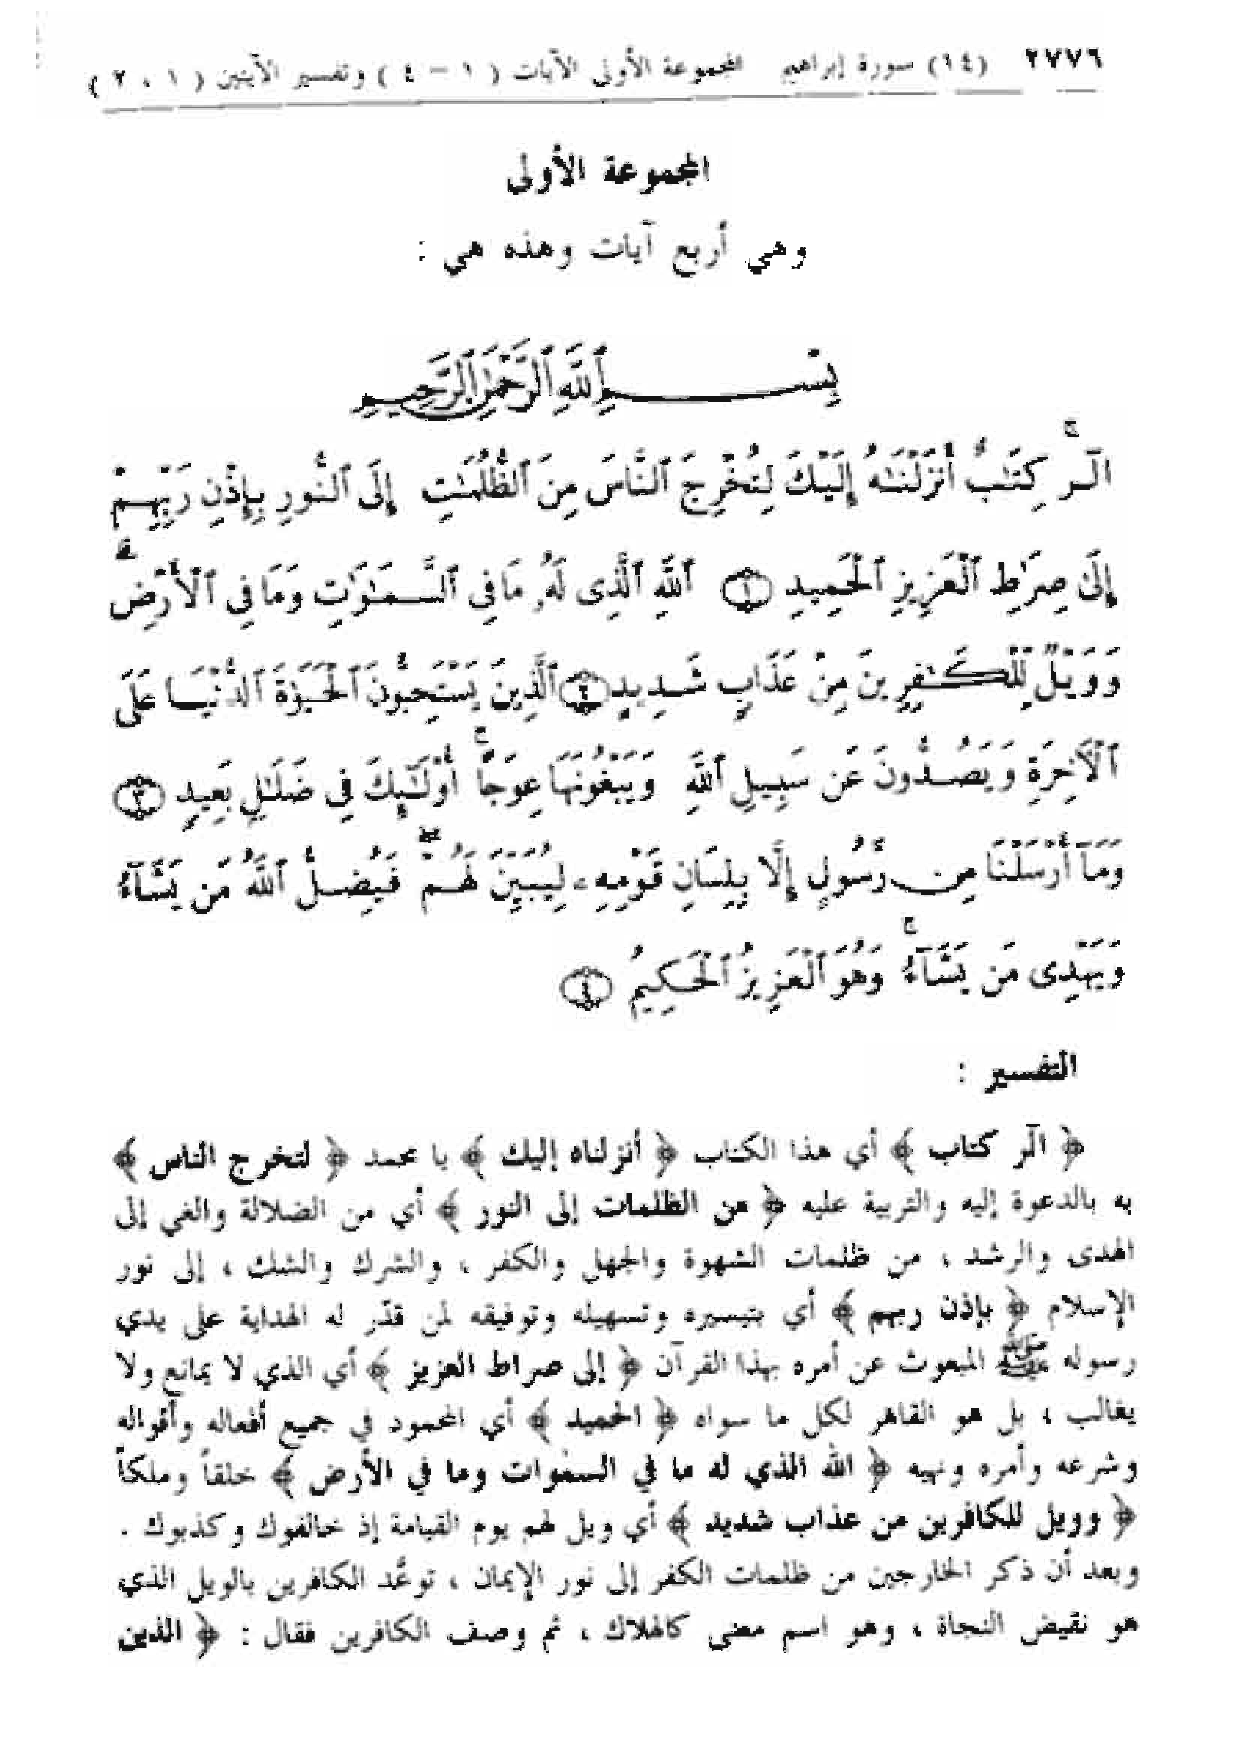 ٢٧٧٦ (١٤) سورة إبراهيم المجموعة الأولى الآيات ( ١ – ٤ ) وتفسير الآيتين ( ١ ، ٢ )
المجموعة الأولى
وهي أربع آيات وهذه هي :
بِسْمِ ٱللَّهِ ٱلرَّحْمَٰنِ ٱلرَّحِيمِ
الٓر ۚ كِتَٰبٌ أَنزَلْنَٰهُ إِلَيْكَ لِتُخْرِجَ ٱلنَّاسَ مِنَ ٱلظُّلُمَٰتِ إِلَى ٱلنُّورِ بِإِذْنِ رَبِّهِمْ
إِلَىٰ صِرَٰطِ ٱلْعَزِيزِ ٱلْحَمِيدِ ١ ٱللَّهِ ٱلَّذِى لَهُۥ مَا فِى ٱلسَّمَٰوَٰتِ وَمَا فِى ٱلْأَرْضِ ۗ
وَوَيْلٌ لِّلْكَٰفِرِينَ مِنْ عَذَابٍ شَدِيدٍ ٢ ٱلَّذِينَ يَسْتَحِبُّونَ ٱلْحَيَوٰةَ ٱلدُّنْيَا عَلَى
ٱلْأَخِرَةِ وَيَصُدُّونَ عَن سَبِيلِ ٱللَّهِ وَيَبْغُونَهَا عِوَجًا ۚ أُو۟لَٰٓئِكَ فِى ضَلَٰلٍ بَعِيدٍ ٣
وَمَآ أَرْسَلْنَا مِن رَّسُولٍ إِلَّا بِلِسَانِ قَوْمِهِۦ لِيُبَيِّنَ لَهُمْ ۖ فَيُضِلُّ ٱللَّهُ مَن يَشَآءُ
وَيَهْدِى مَن يَشَآءُ ۚ وَهُوَ ٱلْعَزِيزُ ٱلْحَكِيمُ ٤
التفسير :
﴿ الٓر كتاب ﴾ أي هذا الكتاب ﴿ أنزلناه إليك ﴾ يا محمد ﴿ لتخرج الناس ﴾
به بالدعوة إليه والتربية عليه ﴿ من الظلمات إلى النور ﴾ أي من الضلالة والغي إلى
الهدى والرشد ، من ظلمات الشهوة والجهل والكفر ، والشرك والشك ، إلى نور
الإسلام ﴿ بإذن ربهم ﴾ أي بتيسيره وتسهيله وتوفيقه لمن قدّر له الهداية على يدي
رسوله ﷺ المبعوث عن أمره بهذا القرآن ﴿ إلى صراط العزيز ﴾ أي الذي لا يمانع ولا
يغالب ، بل هو القاهر لكل ما سواه ﴿ الحميد ﴾ أي المحمود في جميع أفعاله وأقواله
وشرعه وأمره ونهيه ﴿ الله الذي له ما في السمٰوات وما في الأرض ﴾ خلقاً وملكاً
﴿ وويل للكافرين من عذاب شديد ﴾ أي ويل لهم يوم القيامة إذ خالفوك وكذبوك .
وبعد أن ذكر الخارجين من ظلمات الكفر إلى نور الإيمان ، توعَّد الكافرين بالويل الذي
هو نقيض النجاة ، وهو اسم معنى كالهلاك ، ثم وصف الكافرين فقال : ﴿ الذين